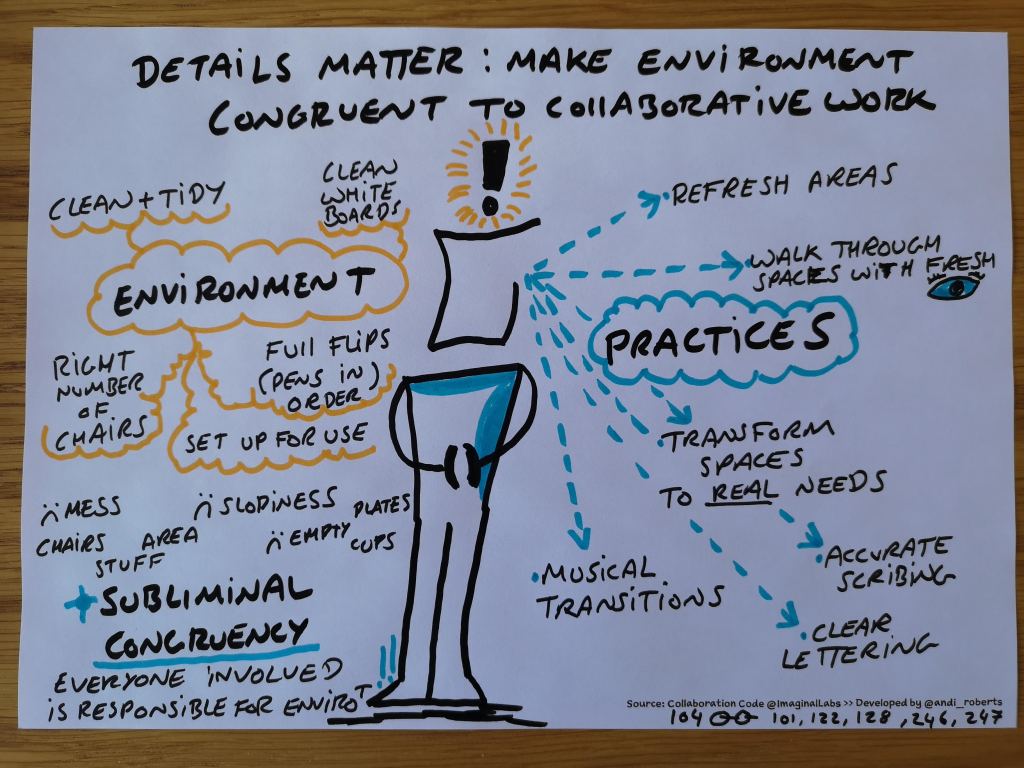 DETAILS MATTER : MAKE ENVIRONMENT
CONGRUENT TO COLLABORATIVE WORK
!
CLEAN + TIDY
CLEAN
WHITE
BOARDS
ENVIRONMENT
RIGHT
NUMBER
OF
CHAIRS
FULL FLIPS
(PENS IN)
ORDER
SET UP FOR USE
:( MESS
CHAIRS AREA
STUFF
:( SLOPINESS
:( EMPTY PLATES
CUPS
+ SUBLIMINAL
CONGRUENCY
EVERYONE INVOLVED
IS RESPONSIBLE FOR ENVIROT
• REFRESH AREAS
• WALK THROUGH
SPACES WITH FRESH
PRACTICES
• TRANSFORM
SPACES
TO REAL NEEDS
• ACCURATE
SCRIBING
• MUSICAL
TRANSITIONS
• CLEAR
LETTERING
Source: Collaboration Code @ImaginalLabs >> Developed by @andi_roberts
104 101, 122, 128, 246, 247